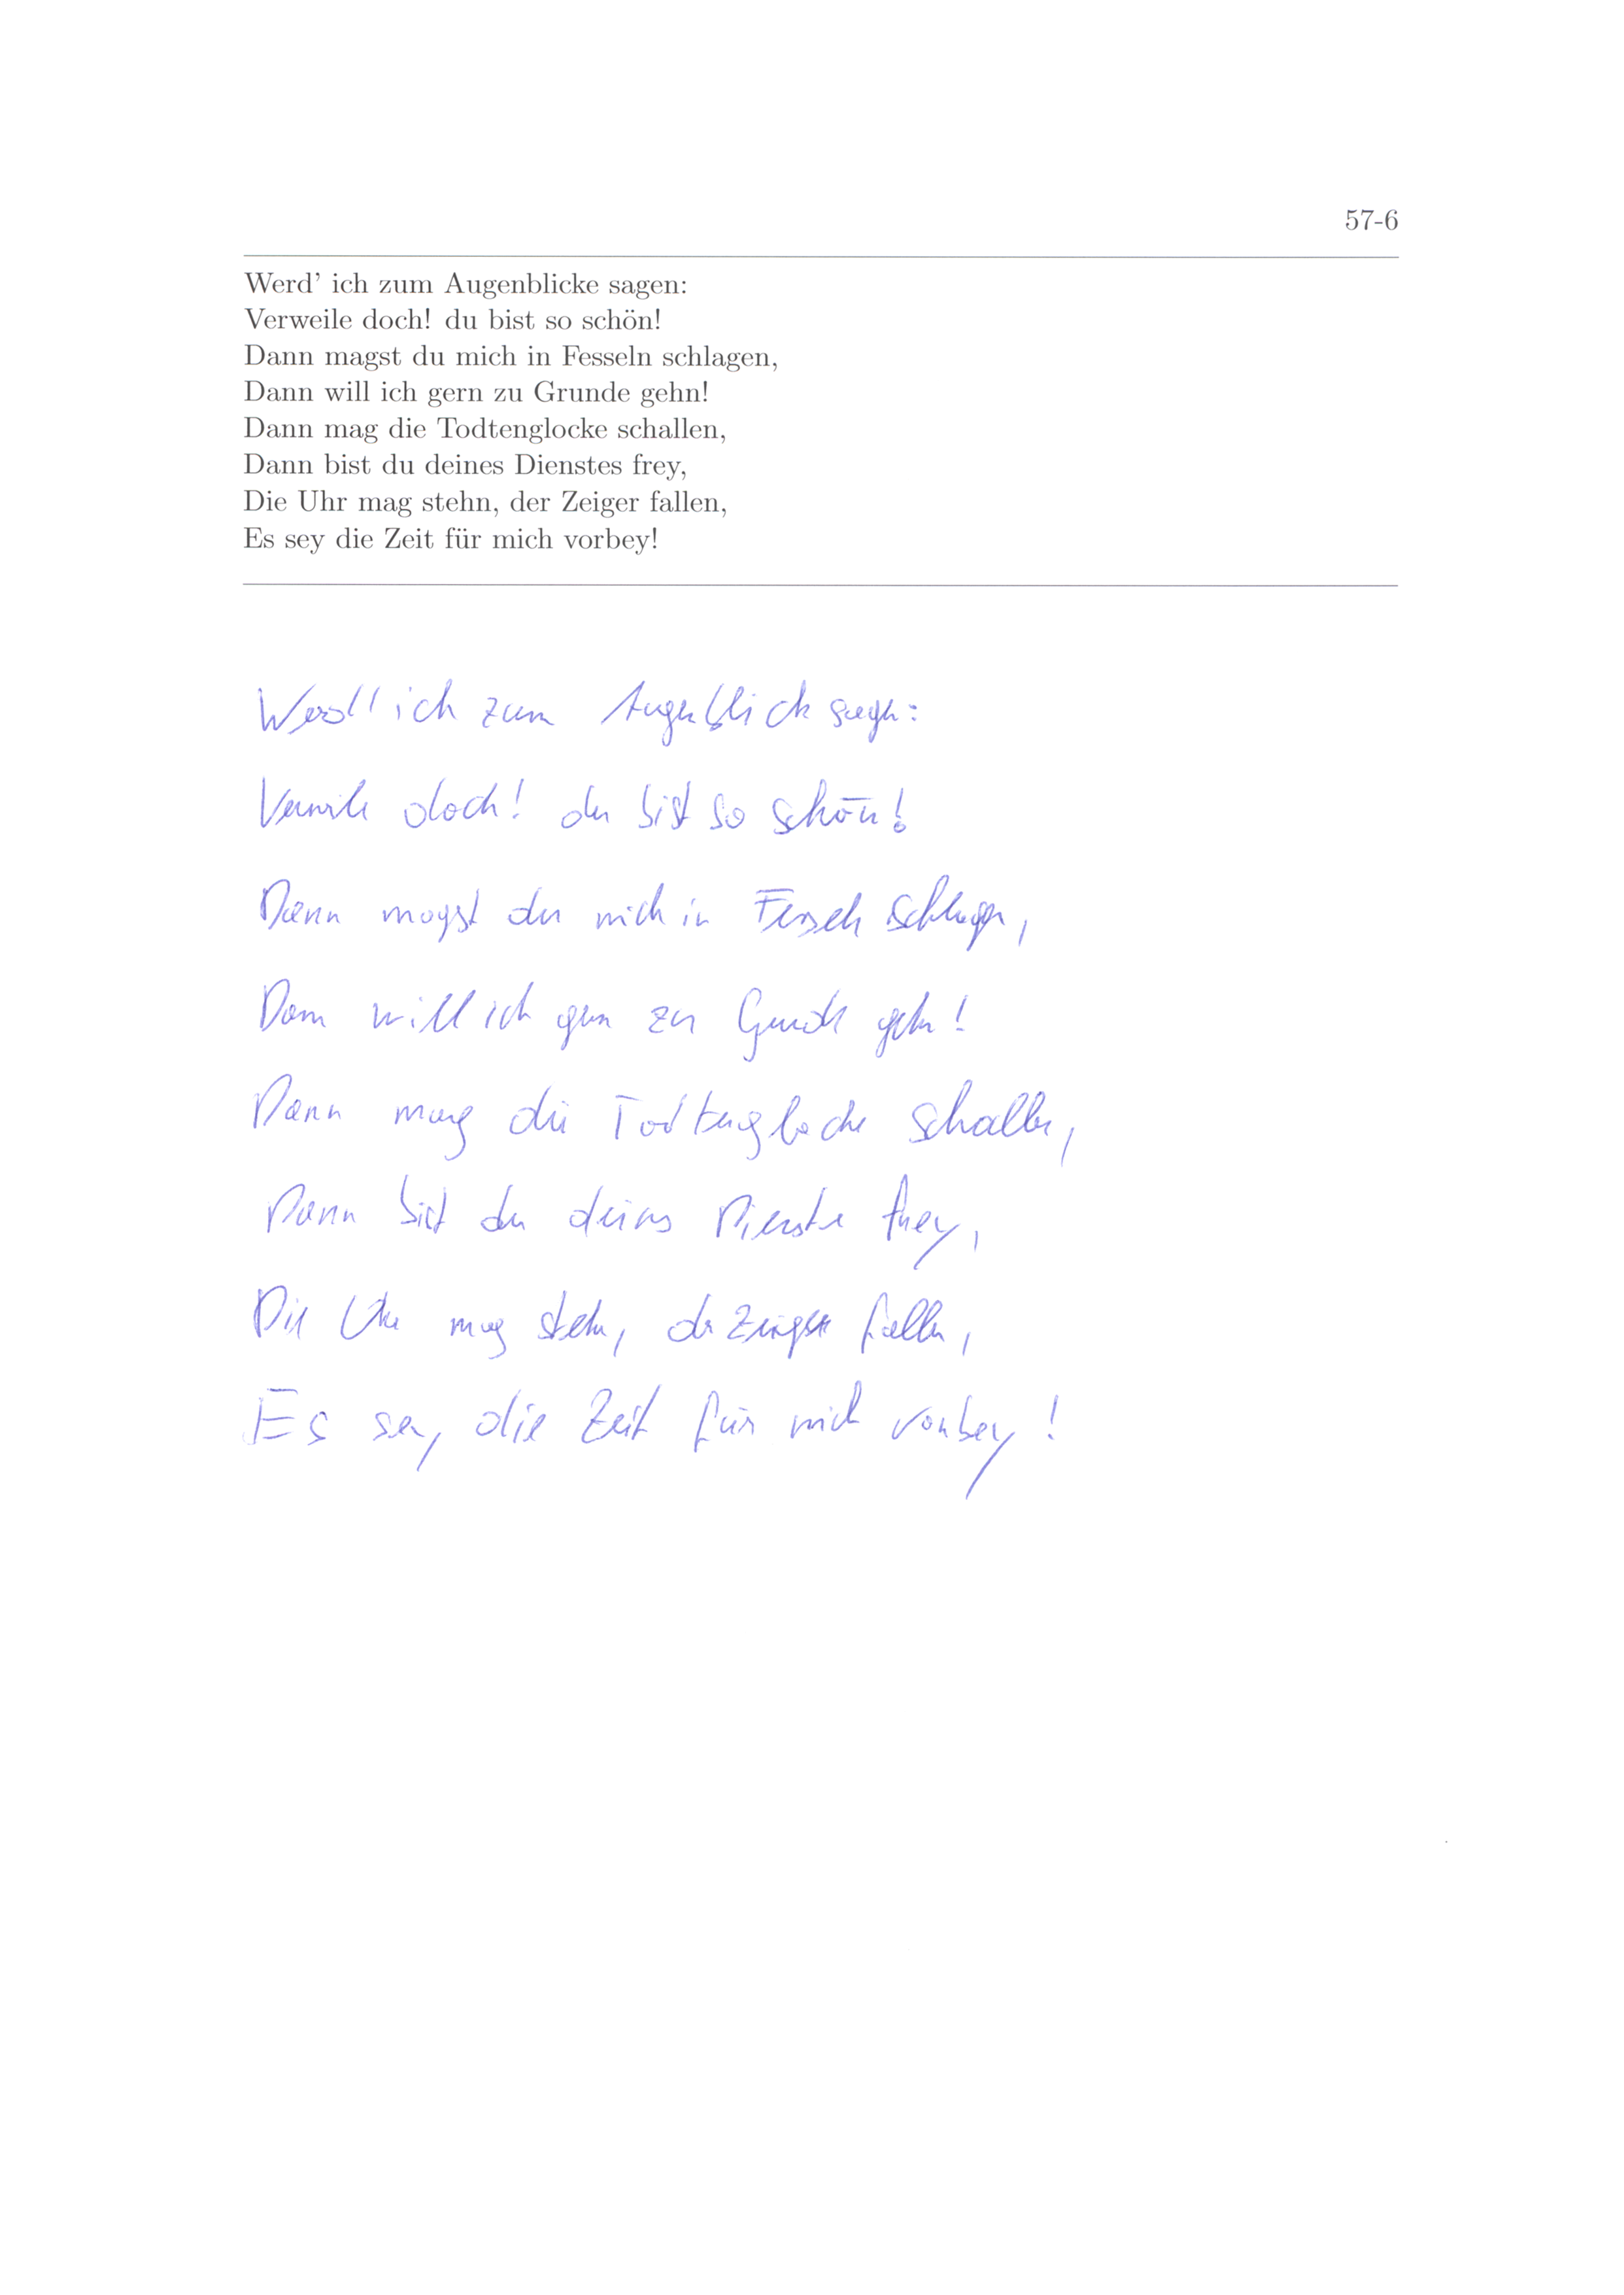 57-6
Werd' ich zum Augenblicke sagen:
Verweile doch! du bist so schön!
Dann magst du mich in Fesseln schlagen,
Dann will ich gern zu Grunde gehn!
Dann mag die Todtenglocke schallen,
Dann bist du deines Dienstes frey,
Die Uhr mag stehn, der Zeiger fallen,
Es sey die Zeit für mich vorbey!
Werd' ich zum Augenblick sagen:
Verweile doch! du bist so schön!
Dann magst du mich in Fesseln schlagen,
Dann will ich gern zu Grunde gehn!
Dann mag die Todtenglocke schallen,
Dann bist du deines Dienste frey,
Die Uhr mag stehn, der Zeiger fallen,
Es sey die Zeit für mich vorbey!